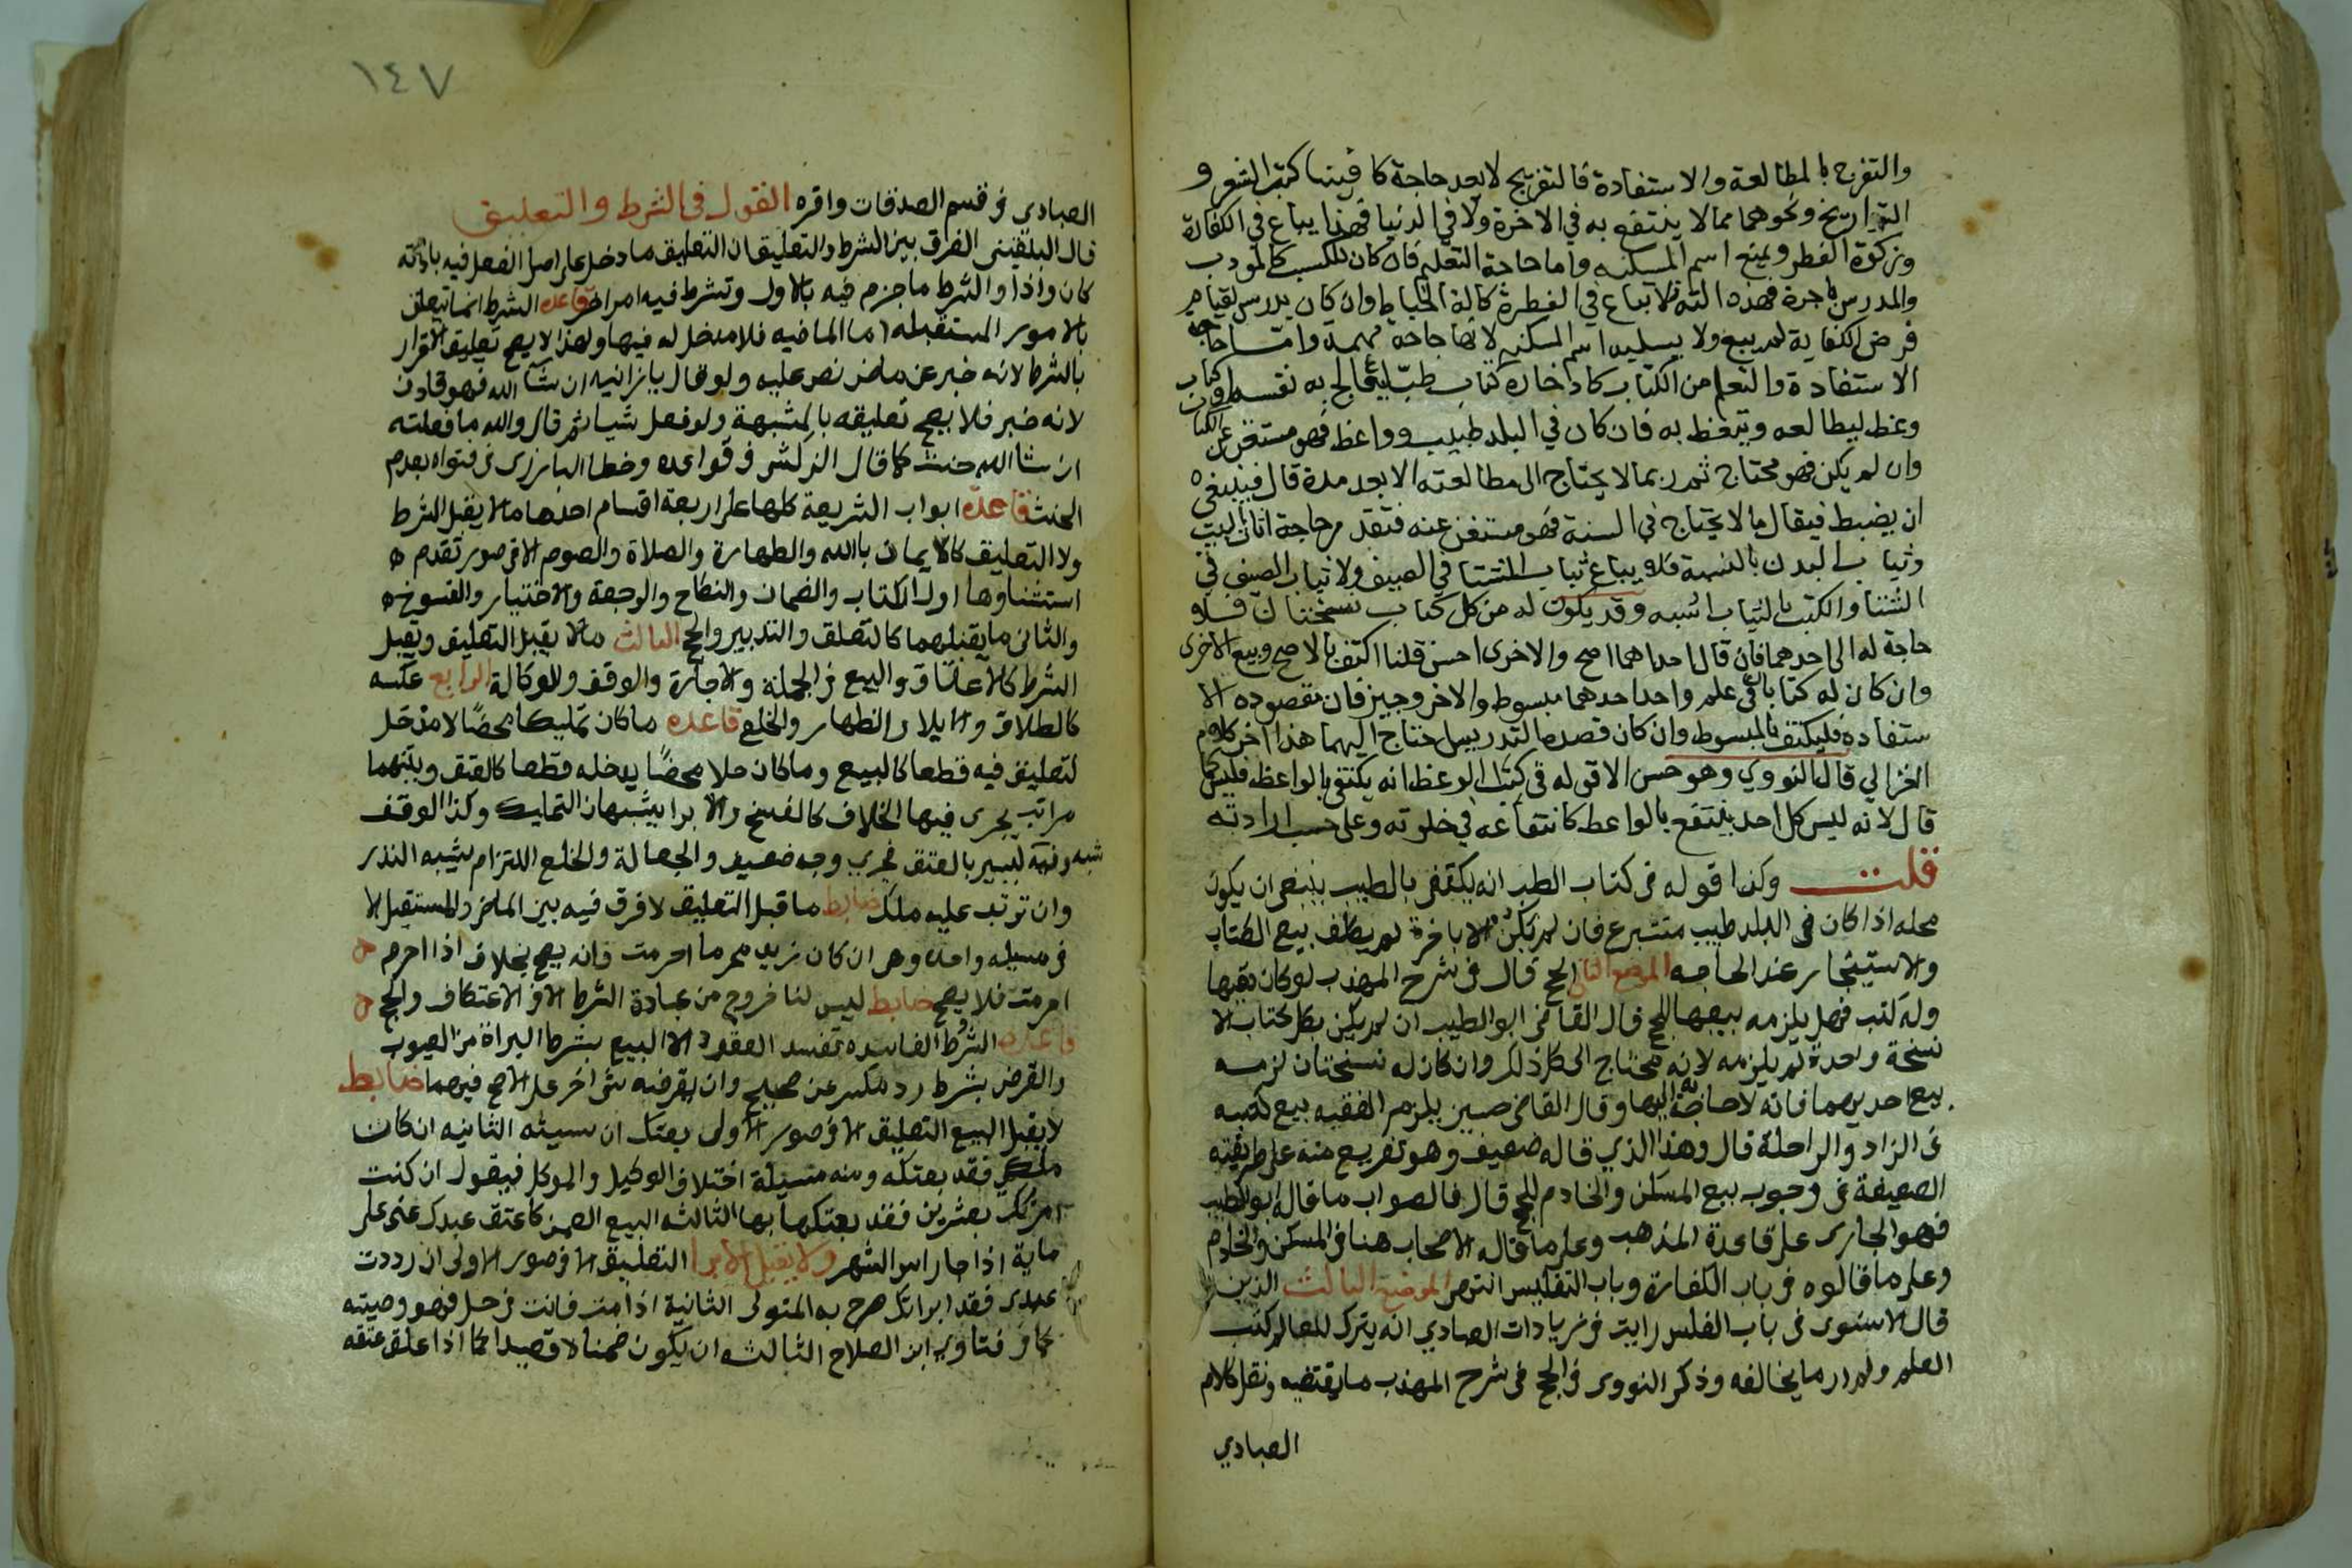 والتفرج بالمطالعة والاستفادة فالتفريج لا يعد حاجة كاقتناء كتب الشعر و
التواريخ ونحوهما مما لا ينتفع به في الاخرة ولا في الدنيا فهذا يباع في الكفارة
وزكوة الفطر ويمنع اسم المسكنه واما حاجة التعليم فان كان للكسب كالمودب
والمدرس باجرة فهذه الته فلا تباع في الفطرة كالة الخياط وان كان يدرس لقيام
فرض الكفاية لم يبع ولا يسلبه اسم المسكنه لانها حاجة مهمة واما حاجة
الاستفادة والتعلم من الكتاب كادخاره كتاب طب ليعالج به نفسه او كتاب
وعظ ليطالعه ويتعظ به فان كان في البلد طبيب وواعظ فهو مستغن عن الكتاب
وان لم يكن فهو محتاج ثم ربما لا يحتاج الى مطالعته الا بعد مدة قال فينبغي
ان يضبط فيقال ما لا يحتاج في السنة فهو مستغن عنه فتقدر حاجة اثاث البيت
وثياب البدن بالسنة فلا يباع ثياب الشتا في الصيف ولا ثياب الصيف في
الشتا والكتب بالثياب اشبه وقد يكون له من كل كتاب نسختان فلا
حاجة له الى احدهما فان قال احداهما اصح والاخرى احسن قلنا اكتف بالاصح وبع الاخرى
وان كان له كتابان في علم واحد احدهما مبسوط والاخر وجيز فان مقصوده الا
ستفادة فليكتف بالمبسوط وان كان قصده التدريس احتاج اليهما هذا اخر كلام
الغزالي قال النووي وهو حسن الا قوله في كتاب الوعظ انه يكتفي بالواعظ فليس كما
قال لانه ليس كل احد ينتفع بالواعظ كانتفاعه في خلوته وعلى حسب ارادته
قلت وكذا قوله في كتاب الطب انه يكتفى بالطبيب ينبغي ان يكون
محله اذا كان في البلد طبيب متبرع فان لم يكن الا باجرة لم يكلف بيع الكتاب
والاستئجار عند الحاجه الموضع الثاني الحج قال في شرح المهذب لو كان فقيها
وله كتب فهل يلزمه بيعها للحج قال القاضي ابو الطيب ان لم يكن بكل كتاب الا
نسخة واحدة لم يلزمه لانه محتاج الى كل ذلك وان كان له نسختان لزمه
بيع احديهما فانه لا حاجة به اليها وقال القاضي حسين يلزم الفقيه بيع كتبه
في الزاد والراحلة قال وهذا الذي قاله ضعيف وهو تفريع منه على طريقته
الضعيفة في وجوب بيع المسكن والخادم للحج قال فالصواب ما قاله ابو الطيب
فهو الجاري على قاعدة المذهب وعلى ما قاله الاصحاب هنا في المسكن والخادم
وعلى ما قالوه في باب الكفارة وباب التفليس انتهى الموضع الثالث الدين
قال الاسنوي في باب الفلس رايت في زيادات العبادي انه يترك للعالم كتب
العلم ولم ار ما يخالفه وذكر النووي في الحج في شرح المهذب ما يقتضيه ونقل كلام
العبادي
١٤٧
العبادي في قسم الصدقات واقره القول في الشرط والتعليق
قال البلقيني الفرق بين الشرط والتعليق ان التعليق ما دخل على اصل الفعل فيه باداته
كان واذا والشرط ما جزم فيه بالاول وشرط فيه امر اخر قاعدة الشرط انما يتعلق
بالامور المستقبله اما الماضيه فلا مدخل له فيها ولهذا لا يصح تعليق الاقرار
بالشرط لانه خبر عن ماض نص عليه ولو قال يا زانيه ان شا الله فهو قاذف
لانه خبر فلا يصح تعليقه بالمشيهة ولو فعل شيا ثم قال والله ما فعلته
ان شا الله حنث كما قال الزركشي في قواعده وخطا البارزي في فتواه بعدم
الحنث قاعدة ابواب الشريعة كلها على اربعة اقسام احدها ما لا يقبل الشرط
ولا التعليق كالايمان بالله والطهارة والصلاة والصوم الا في صور تقدم
استثناوها اول الكتاب والضمان والنكاح والرجعة والاختيار والفسوخ
والثاني ما يقبلهما كالتعلق والتدبير والحج الثالث ما لا يقبل التعليق ويقبل
الشرط كالاعتاق والبيع في الجملة والاجارة والوقف والوكالة الرابع عكسه
كالطلاق والايلا والظهار والخلع قاعده ما كان تمليكا محضًا لا مدخل
لتعليق فيه قطعا كالبيع وما كان حلا محضًا يدخله قطعا كالعتق وبينهما
مراتب يجري فيها الخلاف كالفسخ والابرا يشبهان التمليك وكذا الوقف
وفيه شبه يسير بالعتق فجري وجه ضعيف والجعالة والخلع التزام يشبه النذر
وان ترتب عليه ملك ضابط ما قبل التعليق لا فرق فيه بين الماضي والمستقبل الا
في مسيله واحده وهي ان كان زيد محرما احرمت فانه يصح بخلاف اذا احرم
احرمت فلا يصح ضابط ليس لنا خروج من عبادة الشرط الا في الاعتكاف والحج
قاعده الشرط الفاسده تفسد العقود الا البيع بشرط البراة من العيوب
والقرض بشرط رد مكسر عن صحيح وان يقرضه شي اخر على الاصح فيهما ضابط
لا يقبل البيع التعليق الا في صور الاولى بعتك ان شيت الثانيه ان كان
ملكي فقد بعتكه ومنه مسيلة اختلاف الوكيل والموكل فيقول ان كنت
امرتك بعشرين فقد بعتكها بها الثالثه البيع الضمني كاعتق عبدك عني على
ماية اذا جا راس الشهر ولا يقبل الابرا التعليق الا في صور الاولى ان رددت
عبدي فقد ابراتك صرح به المتولي الثانية اذا مت فانت في حل فهو وصيته
كما في فتاوي ابن الصلاح الثالثه ان يكون ضمنا لا قصدا كما اذا علق عتقه